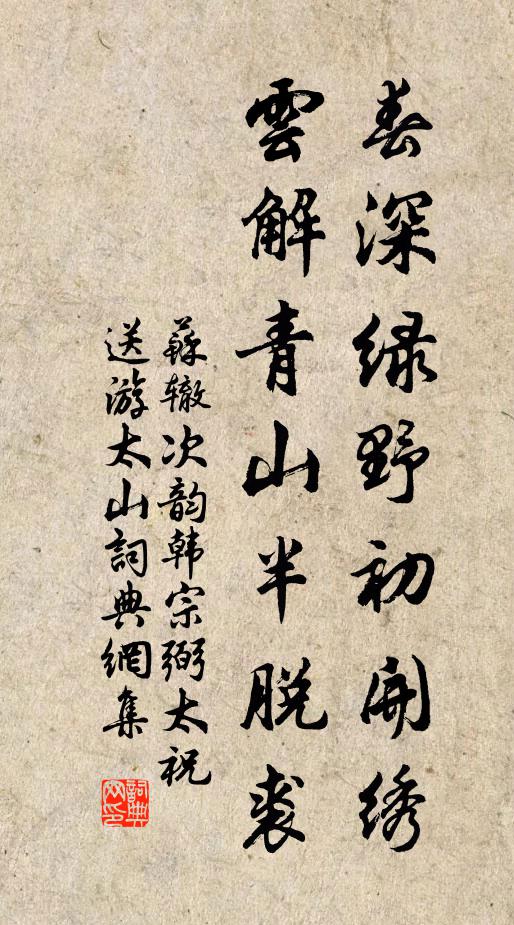 春深绿野初開绣
雲解青山半脱裘
蘇辙次韵韩宗弼太祝
送游太山詞典網集
詞典网印